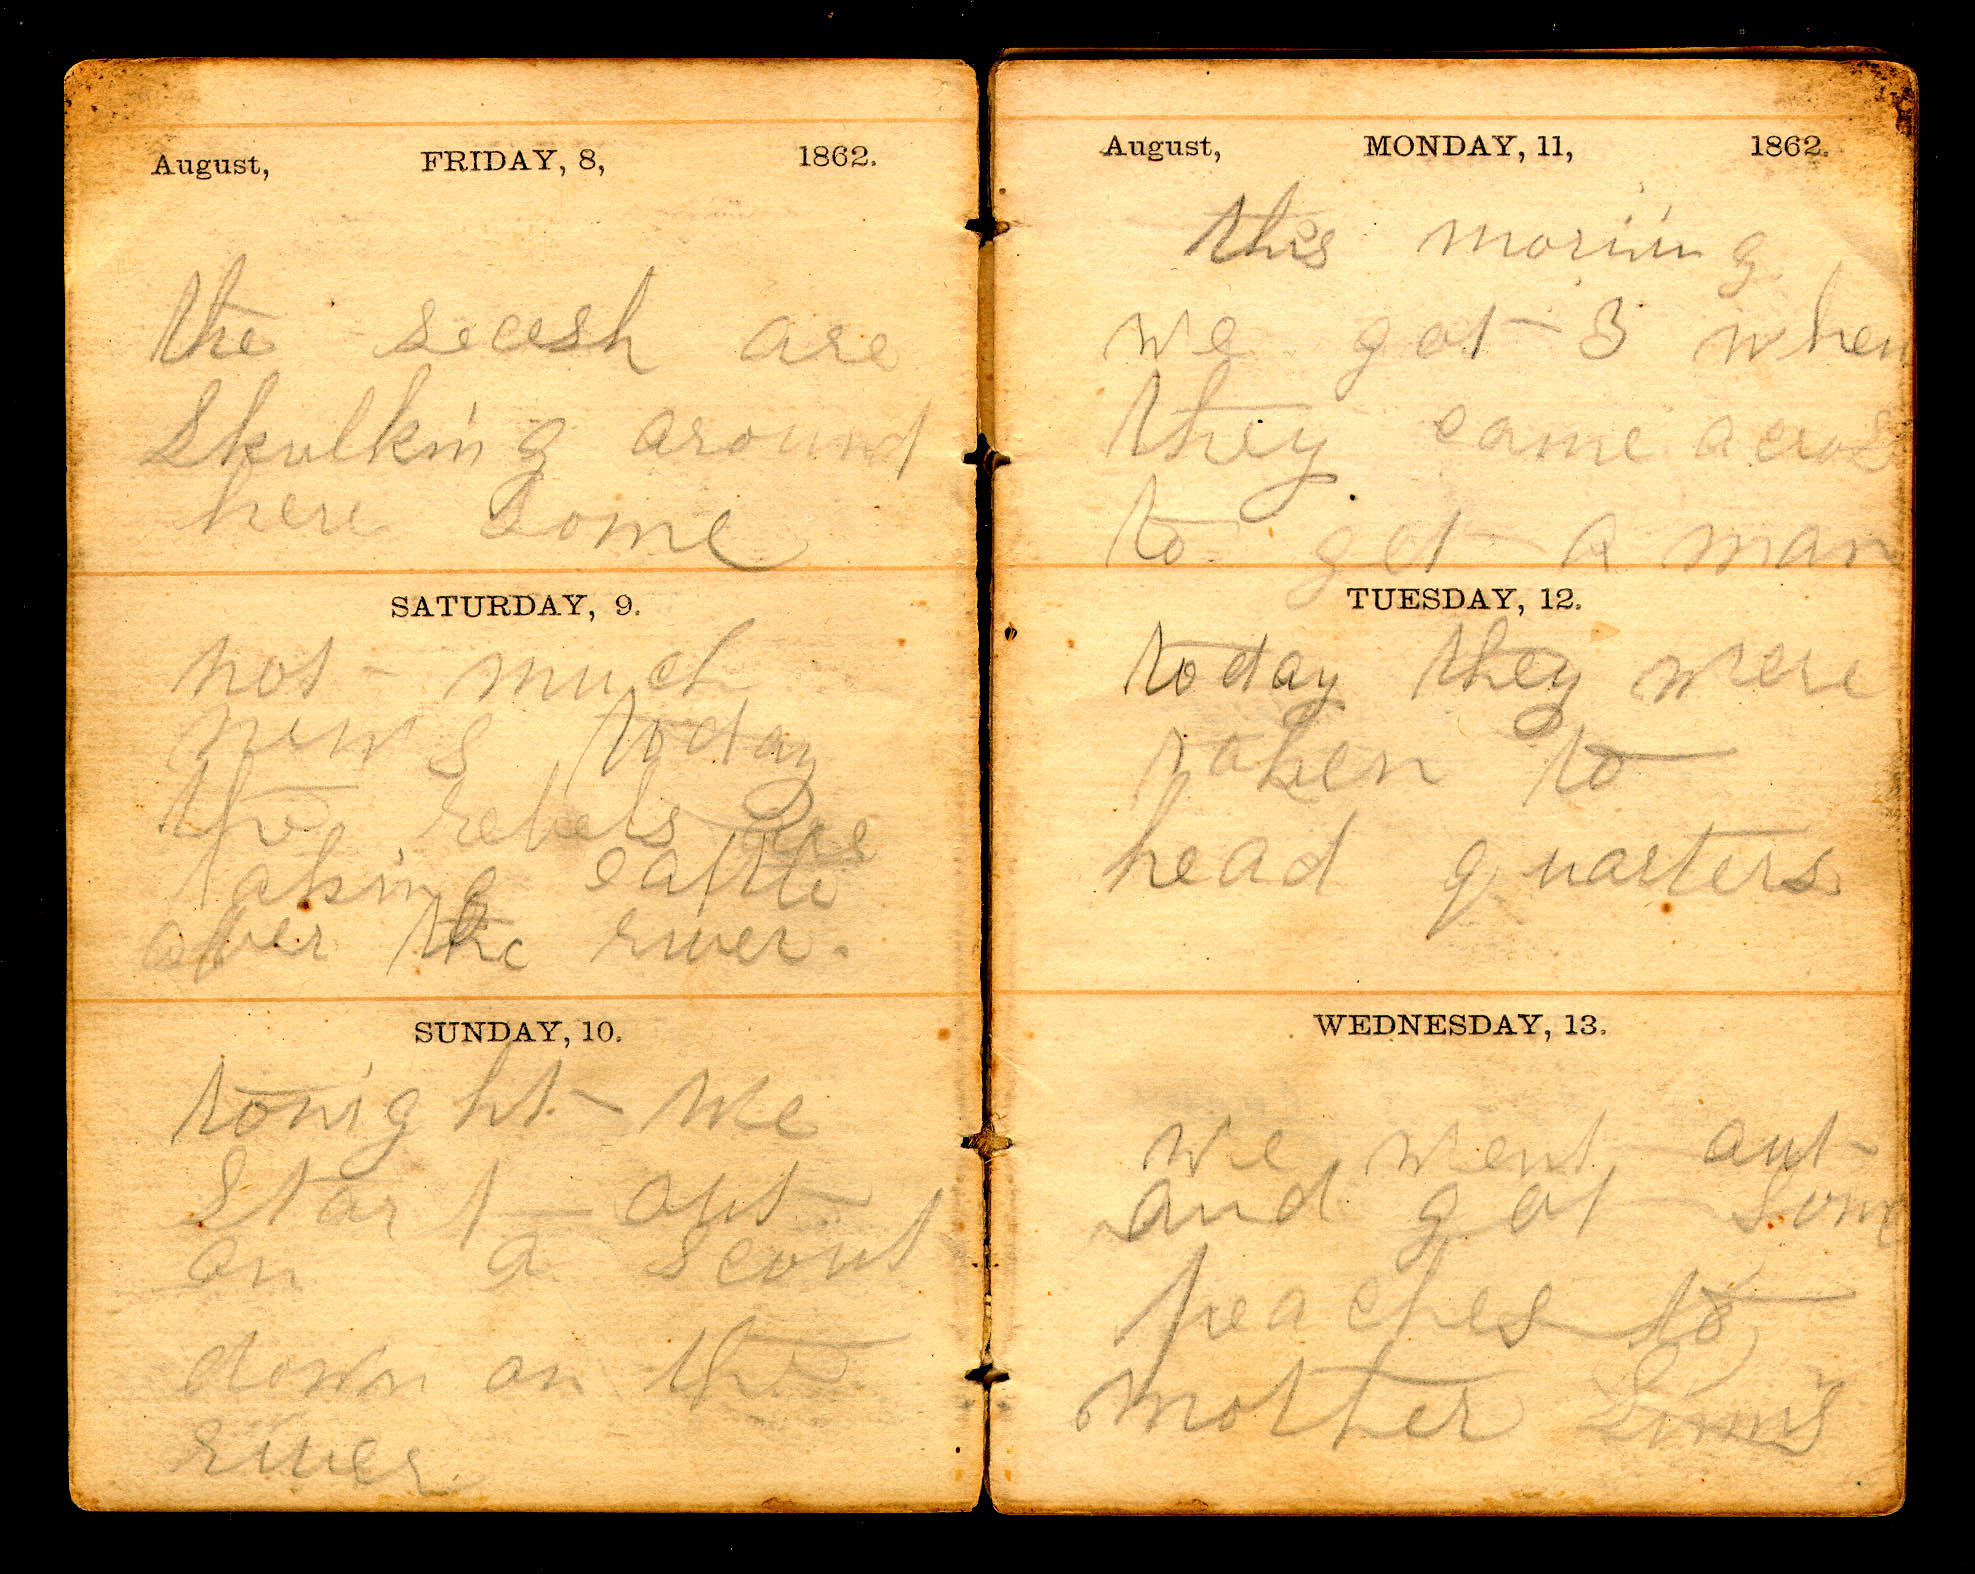 August, FRIDAY, 8, 1862.
the secesh are
Skulking around
here Some
SATURDAY, 9.
not much
news today
the rebels are
taking cattle
over the river.
SUNDAY, 10.
tonight we
Start out
on a scout
down on the
river
August, MONDAY, 11, 1862.
this moriing
we got 3 when
they came acros
to get a man
TUESDAY, 12.
today they were
taken to
head quarters
WEDNESDAY, 13.
we went out
and got som
peaches to
mother